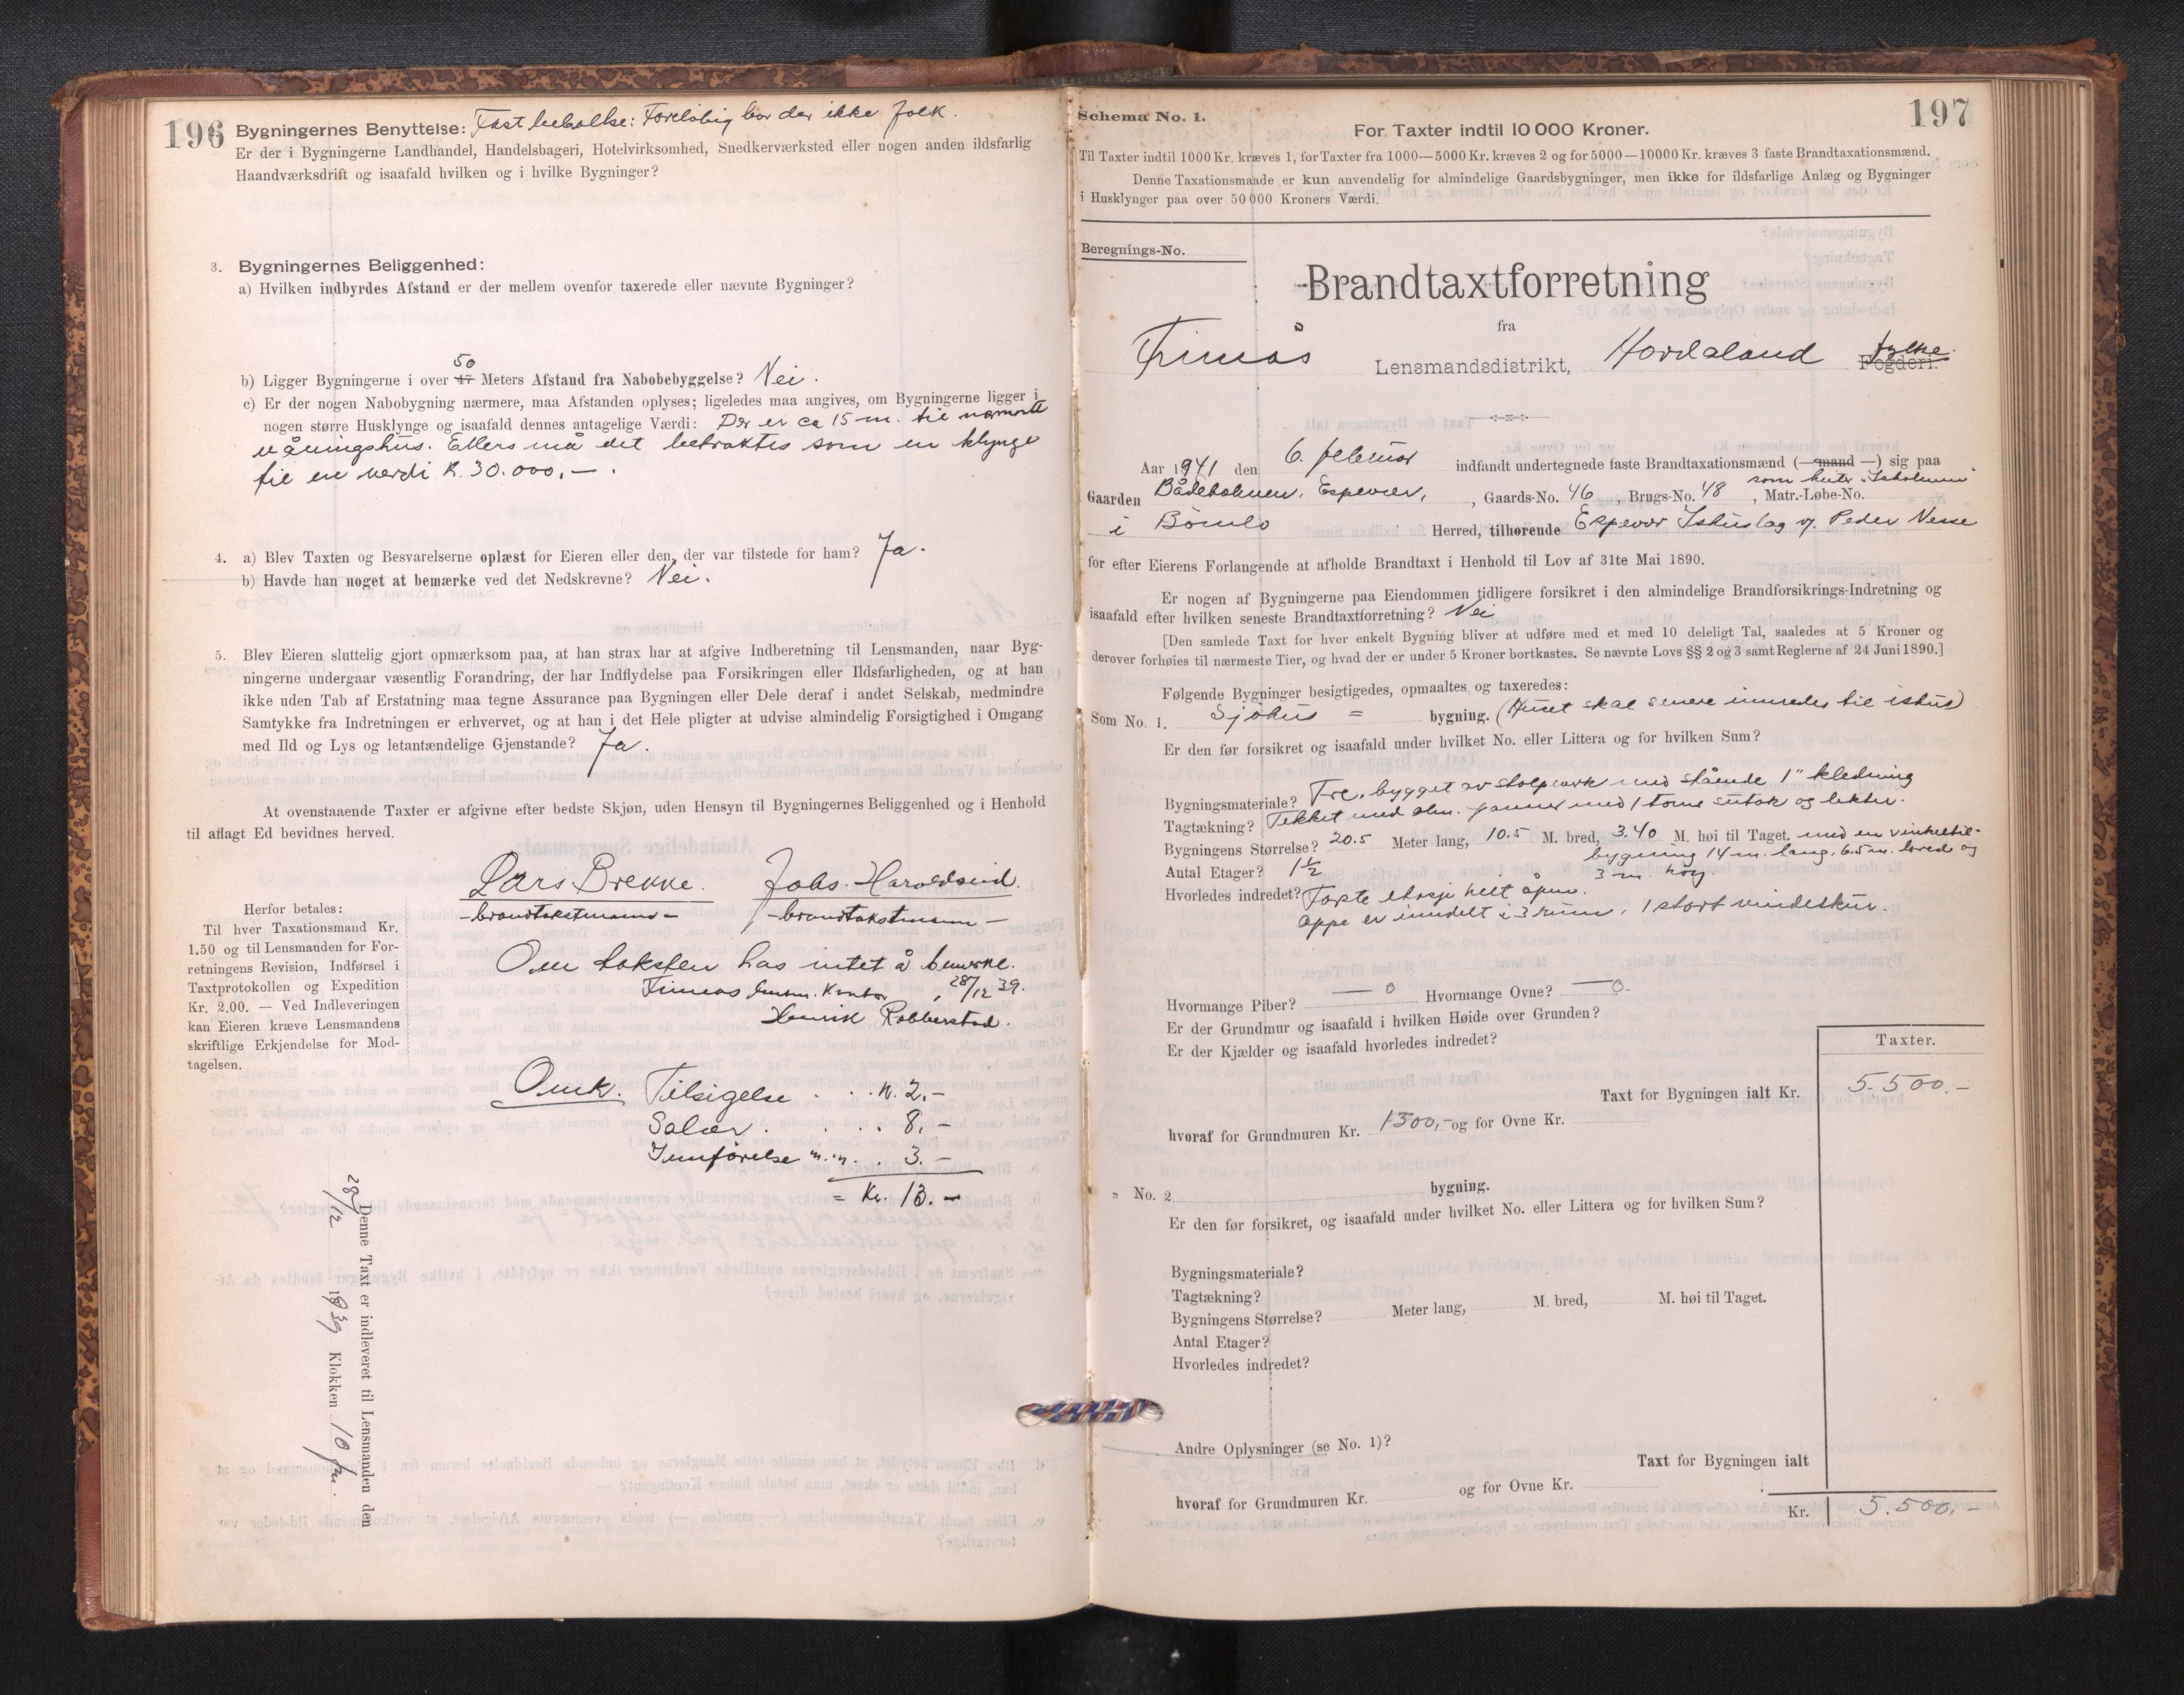 196
Bygningernes Benyttelse: Fast bebolke: Foreløbig bor der ikke folk.
Er der i Bygningerne Landhandel, Handelsbageri, Hotelvirksomhed, Snedkerværksted eller nogen anden ildsfarlig
Haandværksdrift og isaafald hvilken og i hvilke Bygninger?
3. Bygningernes Beliggenhed:
a) Hvilken indbyrdes Afstand er der mellem ovenfor taxerede eller nævnte Bygninger?
50
b) Ligger Bygningerne i over 47 Meters Afstand fra Nabobebyggelse? Nei.
c) Er der nogen Nabobygning nærmere, maa Afstanden oplyses; ligeledes maa angives, om Bygningerne ligger i
nogen større Husklynge og isaafald dennes antagelige Værdi: Der er ca 15 m. til nærmeste
våningshus. Ellers må det betraktes som en klynge
til en verdi K. 30.000,-.
4. a) Blev Taxten og Besvarelserne oplæst for Eieren eller den, der var tilstede for ham? Ja.
b) Havde han noget at bemærke ved det Nedskrevne? Nei.
5. Blev Eieren sluttelig gjort opmærksom paa, at han strax har at afgive Indberetning til Lensmanden, naar Byg-
ningerne undergaar væsentlig Forandring, der har Indflydelse paa Forsikringen eller Ildsfarligheden, og at han
ikke uden Tab af Erstatning maa tegne Assurance paa Bygningen eller Dele deraf i andet Selskab, medmindre
Samtykke fra Indretningen er erhvervet, og at han i det Hele pligter at udvise almindelig Forsigtighed i Omgang
med Ild og Lys og letantændelige Gjenstande? Ja.
At ovenstaaende Taxter er afgivne efter bedste Skjøn, uden Hensyn til Bygningernes Beliggenhed og i Henhold
til aflagt Ed bevidnes herved.
Lars Brekke. Johs. Haroldseid.
-brandtakstmann- -brandtakstmann-
Herfor betales:
Til hver Taxationsmand Kr.
1.50 og til Lensmanden for For-
retningens Revision, Indførsel i
Taxtprotokollen og Expedition
Kr. 2.00. — Ved Indleveringen
kan Eieren kræve Lensmandens
skriftlige Erkjendelse for Mod-
tagelsen.
Om taksten has intet å bemerke.
Finnås lensm. Kontor, 28/12 39.
Henrik Robberstad.
Omk. Tilsigelse . . . K. 2.-
Salær . . . . 8.-
Innførelse m.m. . 3.-
= Kr. 13.-
Denne Taxt er indleveret til Lensmanden den
28/12 1939 Klokken 10 fm.
197
Schema No. 1.
For Taxter indtil 10 000 Kroner.
Til Taxter indtil 1000 Kr. kræves 1, for Taxter fra 1000—5000 Kr. kræves 2 og for 5000—10000 Kr. kræves 3 faste Brandtaxationsmænd.
Denne Taxationsmaade er kun anvendelig for almindelige Gaardsbygninger, men ikke for ildsfarlige Anlæg og Bygninger
i Husklynger paa over 50 000 Kroners Værdi.
Beregnings-No.
Brandtaxtforretning
fra
Finnås Lensmandsdistrikt, Hordaland Fogderi. fylke.
Aar 1941 den 6. februar indfandt undertegnede faste Brandtaxationsmænd (—mand—) sig paa
som heiter „Isholmen“
Gaarden Bådeholmen, Espevær, , Gaards-No. 46 , Brugs-No. 48 , Matr.-Løbe-No.
i Bömlo Herred, tilhørende Espevær Ishuslag v. Peder Nesse
for efter Eierens Forlangende at afholde Brandtaxt i Henhold til Lov af 31te Mai 1890.
Er nogen af Bygningerne paa Eiendommen tidligere forsikret i den almindelige Brandforsikrings-Indretning og
isaafald efter hvilken seneste Brandtaxtforretning? Nei
[Den samlede Taxt for hver enkelt Bygning bliver at udføre med et med 10 deleligt Tal, saaledes at 5 Kroner og
derover forhøies til nærmeste Tier, og hvad der er under 5 Kroner bortkastes. Se nævnte Lovs §§ 2 og 3 samt Reglerne af 24 Juni 1890.]
Følgende Bygninger besigtigedes, opmaaltes og taxeredes:
Som No. 1. Sjöhus = bygning. (Huset skal senere innredes til ishus)
Er den før forsikret og isaafald under hvilket No. eller Littera og for hvilken Sum?
Bygningsmateriale? Tre, bygget av stolpverk med stående 1" kledning
Tagtækning? Tekket med alm. panner med 1 toms sutak og lekter.
Bygningens Størrelse? 20.5 Meter lang, 10.5 M. bred, 3.40 M. høi til Taget. med en vinkeltil-
bygning 14 m. lang. 6.5 m. bred og
Antal Etager? 1½ 3 m. høy.
Hvorledes indret? Første etasje helt åpen.
Oppe er inndelt i 3 rum, 1 stort vindeskur.
Hvormange Piber? — 0 Hvormange Ovne? — 0.
Er der Grundmur og isaafald i hvilken Høide over Grunden?
Er der Kjælder og isaafald hvorledes indredet?
Taxter.
Taxt for Bygningen ialt Kr. 5.500.-
hvoraf for Grundmuren Kr. 1500,- og for Ovne Kr.
„ No. 2 bygning.
Er den før forsikret, og isaafald under hvilket No. eller Littera og for hvilken Sum?
Bygningsmateriale?
Tagtækning?
Bygningens Størrelse? Meter lang, M. bred, M. høi til Taget.
Antal Etager?
Hvorledes indredet?
Andre Oplysninger (se No. 1)?
Taxt for Bygningen ialt
hvoraf for Grundmuren Kr. og for Ovne Kr.
Kr. 5.500,-